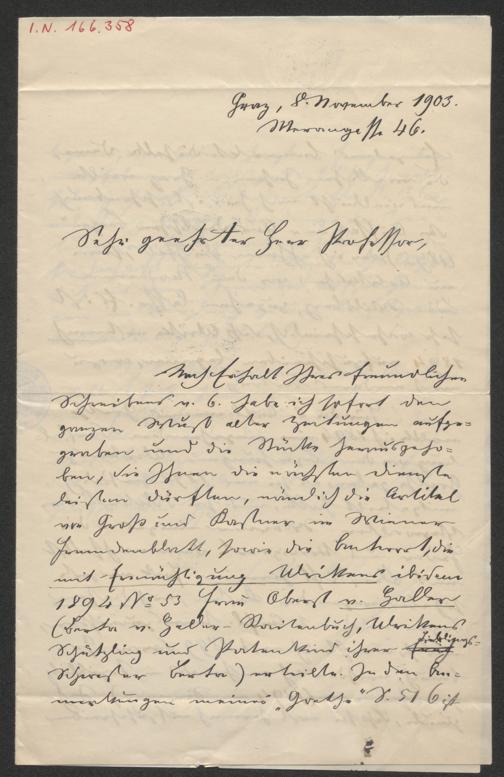 I.N. 166.358
Graz, 8. November 1903.
Merangasse 46.
Sehr geehrter Herr Professor,
Nach Erhalt Ihres freundlichen
Schreibens v. 6. habe ich sofort den
ganzen Wust alter Zeitungen aufge-
graben und die Stücke herausgeho-
ben, die Ihnen die nächsten Dienste
leisten dürften, nämlich die Artikel
von Groß und Kastner im Wiener
Fremdenblatt, sowie die Antwort, die
mit Ermächtigung Ulrikens ibidem
1894 No 53 Frau Oberst v. Heller
(Berta v. Heller-Raitenbuch, Ulrikens
Schützling und Patenkind ihrer
Schwester Berta) erteilte. In den An-
merkungen meines "Goethe" S. 51 6 ist